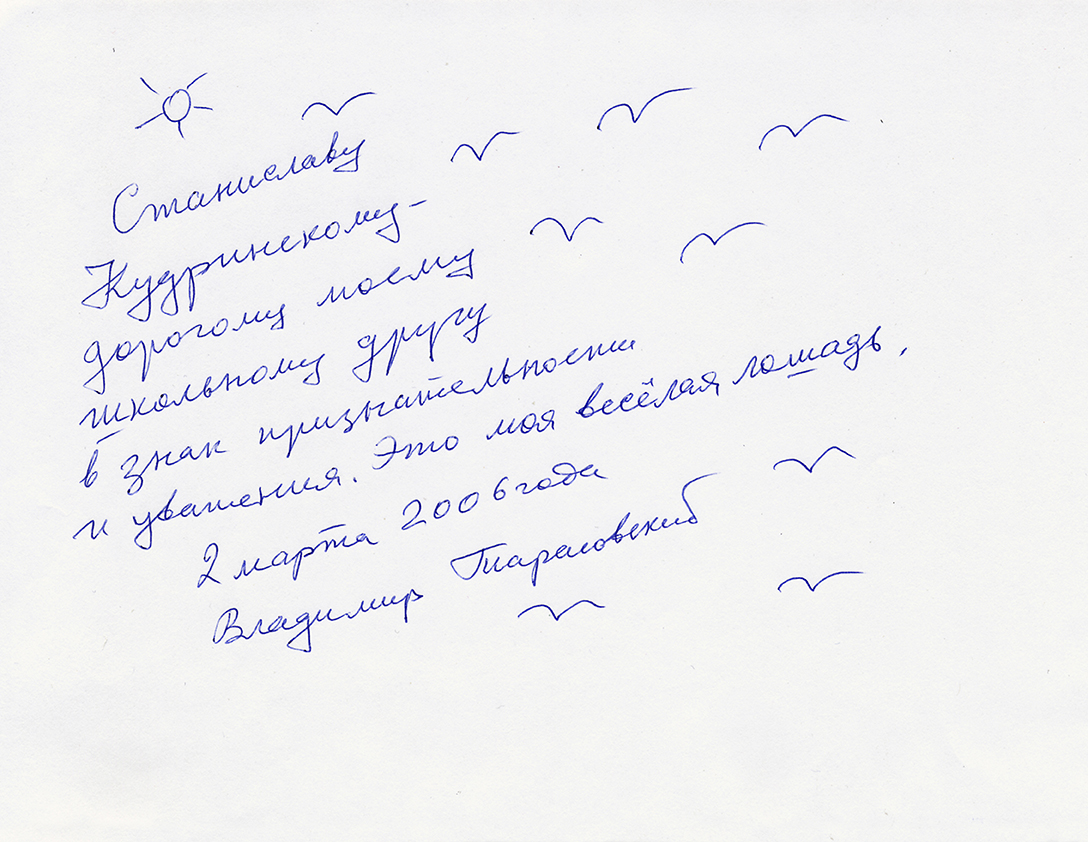 Станиславу
Кудринскому-
дорогому моему
школьному другу
в знак признательности
и уважения. Это моя весёлая лошадь.
2 марта 2006 года
Владимир Тарасовский